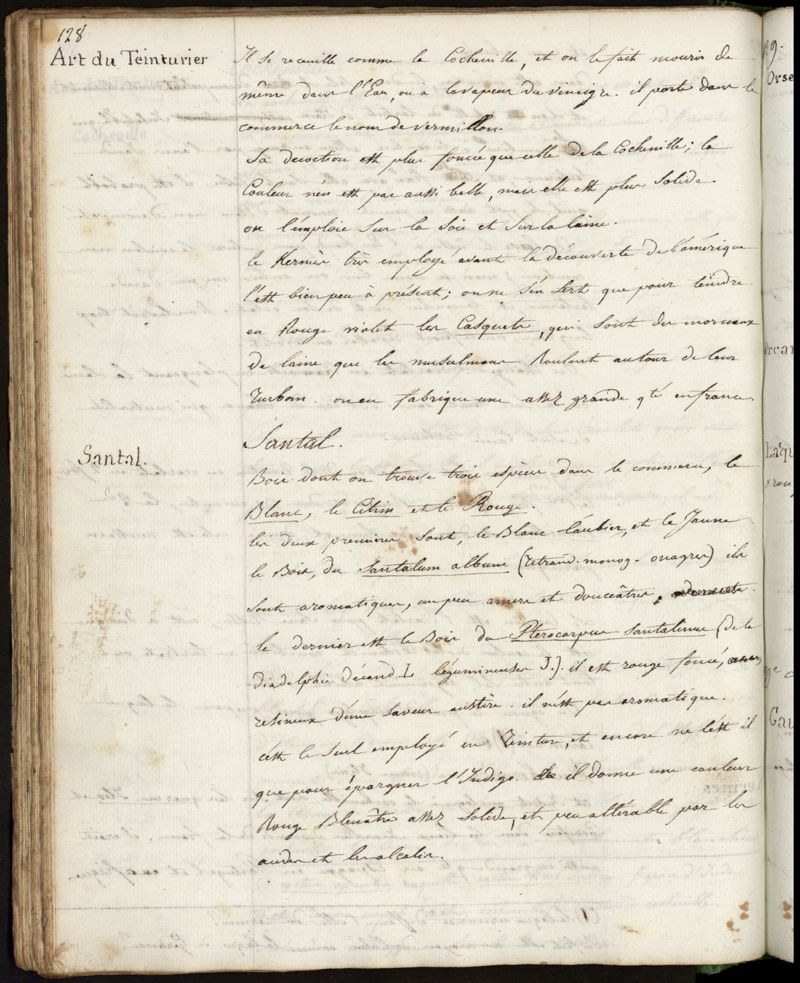 128
Art du Teinturier
Il se receuille comme la Cochenille, et on le fait mourir de
même dans l'Eau, ou à la vapeur du vinaigre. il porte dans le
commerce le nom de vermillon.
Sa decoction est plus foncée que celle de la Cochenille; la
Couleur n'en est pas aussi belle, mais elle est plus Solide.
on l'emploie Sur la Soie et Sur la laine.
le Kermès très employé avant la découverte de l'amérique
l'est bien peu à présent; on ne s'en Sert que pour teindre
en Rouge violet les Casquets, qui Sont des morceaux
de laine que les musulmans Roulent autour de leur
Turban. on en fabrique une assez grande qté en france.
Santal.
Santal.
Bois dont on trouve trois espèces dans le commerce, le
Blanc, le Citrin et le Rouge.
les deux premiers Sont, le Blanc l'aubier, et le Jaune
le Bois, du Santalum album (tétrand. monog. onagres) ils
Sont aromatiques, un peu amers et douceâtres,
le dernier est le Bois du Pterocarpus Santalinus (de la
diadelphie décand. L légumineuses J.). il est rouge foncé,
resineux d'une Saveur austère. il n'est pas aromatique.
c'est le Seul employé en Teinture, et encore ne l'est il
que pour épargner l'Indigo. il donne une couleur
Rouge Bleuâtre assez Solide, et peu altérable par les
acides et les alcalis.